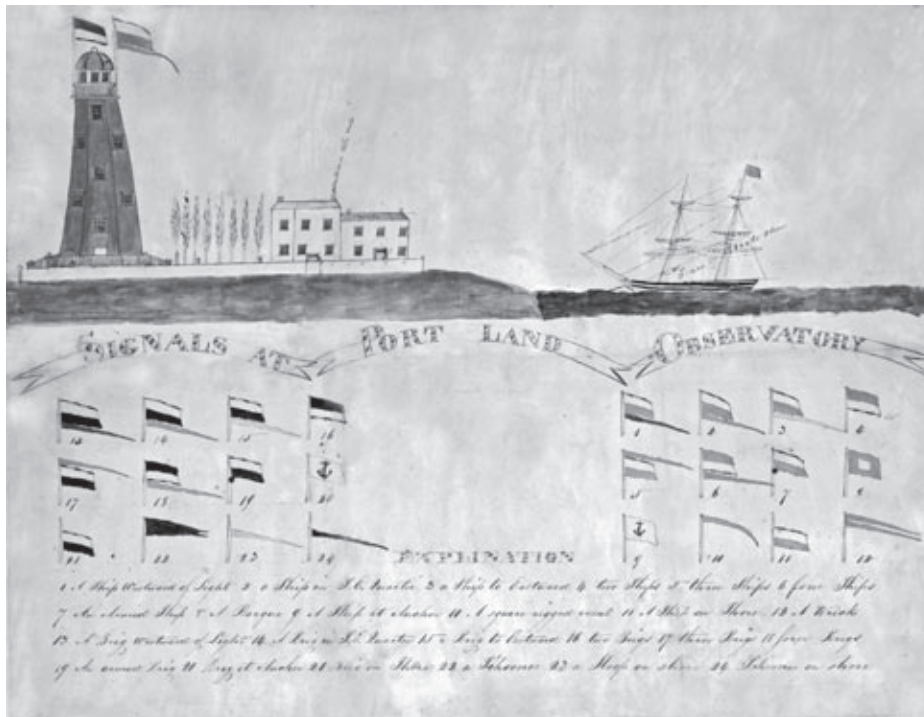 SIGNALS AT PORT LAND OBSERVATORY
13 14 15 16
1 2 3 4
17 18 19 20
5 6 7 8
21 22 23 24
9 10 11 12
EXPLINATION
1 A Ship Westward of Light 2 a Ship in S.E. Quarter 3 a Ship to Eastward 4 two Ships 5 three Ships 6 four Ships
7 An Armed Ship 8 A Barque 9 A Ship at Anchor 10 A square rigged vessel 11 A Ship on Shore 12 A Wreck
13 A Brig Westward of Light 14 A Brig in S.E. Quarter 15 a Brig to Eastward 16 two Brigs 17 three Brigs 18 four Brigs
19 An armed Brig 20 Brig at Anchor 21 Brig on Shore 22 a Schooner 23 a Sloop on shore 24 Schooner on shore